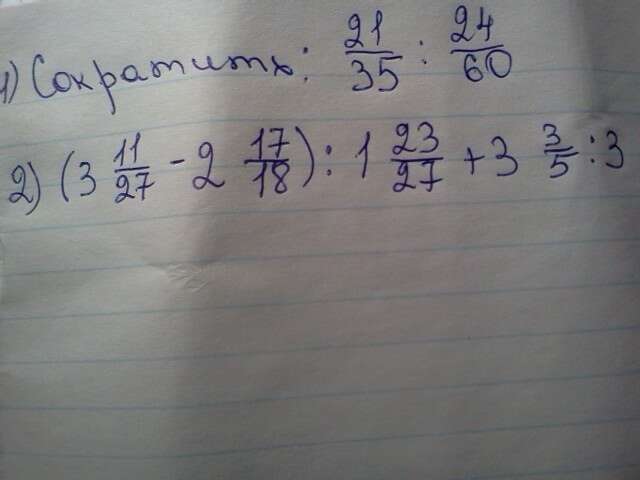 1) Сократить: 21/35 : 24/60
2) (3 11/27 - 2 17/18) : 1 23/27 + 3 3/5 : 3